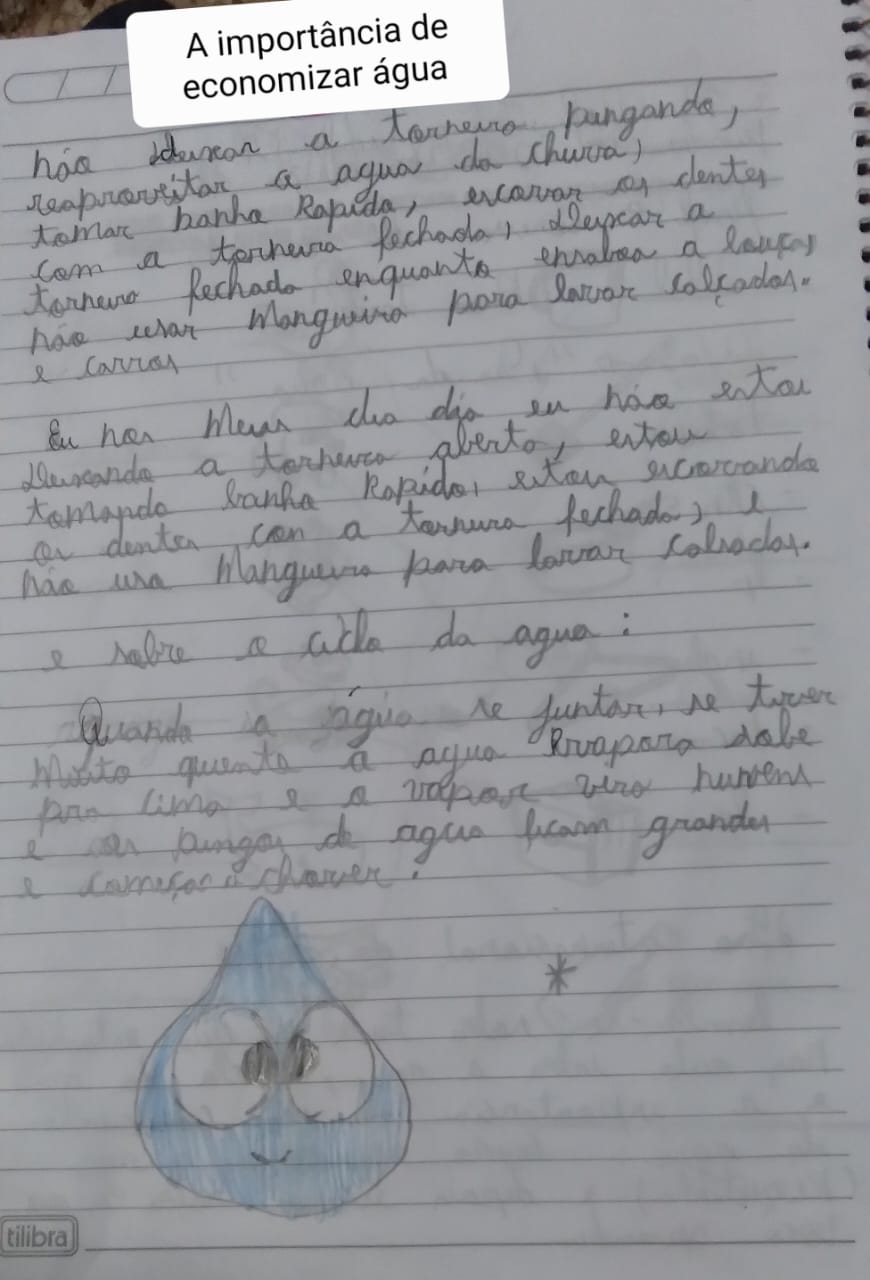 A importância de
economizar água
não deixar a torneira pingando,
reaproveitar a agua da chuva,
tomar banho Rapido, escovar os dentes
com a torneira fechada, deixar a
torneira fechada enquanto ensaboa a louça,
não usar Mangueira para lavar calçadas..
e carros
Eu nos Meus dia dia eu não estou
deixando a torneira aberta, estou
tomando banho Rapido, estou escovando
os dentes con a torneira fechada, e
não uso Mangueira para lavar calsadas.
e sobre o ciclo da agua:
Quando a água se juntar, se tiver
Muito quente a agua Evapora sobe
pra cima e o vapor vira nuvens
e os pingos de agua ficam grandes
e começa a chover.
*
tilibra